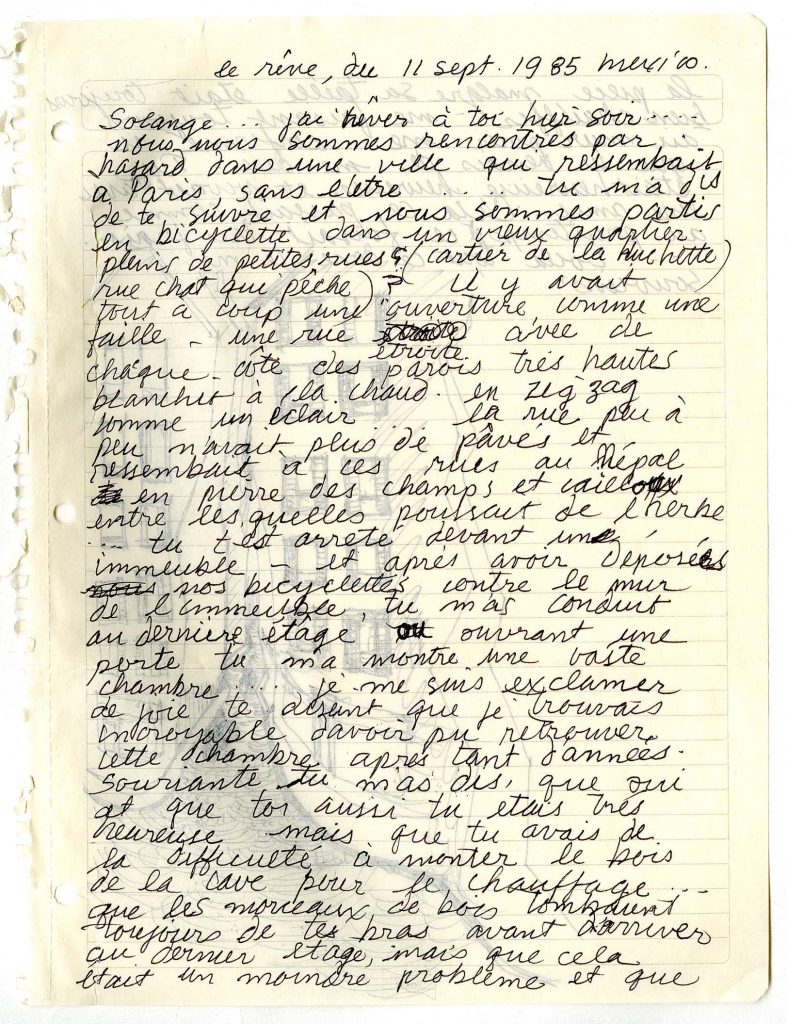 le rêve, du 11 sept. 1985 mexico.
Solange... jai rêver à toi hier soir....
nous nous sommes rencontrés par
hasard dans une ville qui ressembait
a Paris, sans l'etre..... tu m'a dis
de te suivre et nous sommes partis
en bicyclette dans un vieux quartier
pleins de petites rues (cartier de la huchette)
rue chat qui pêche) ? il y avait
tout a coup une "ouverture comme une
faille - une rue avec de
étroite
chaque côté des parois très hautes
blanchit à la chaud. en zig zag
comme un eclair.... la rue peu à
peu n'avait plus de pâvés et
ressembait à ces rues au Népal
en pierre des champs et cailloux
entre lesquelles poussait de l'herbe
... tu t'est arreté devant une
immeuble - et après avoir déposées
nos bicyclettes contre le mur
de l'immeuble, tu m'as conduit
au dernière étâge, ou ouvrant une
porte tu m'a montre une vaste
chambre.... je me suis exclamer
de joie te disant que je trouvais
incroyable d'avoir pu retrouver
cette chambre après tant d'années.
Souriante tu m'as dis, que oui
et que toi aussi tu etais très
heureuse mais que tu avais de
la difficulté à monter le bois
de la cave pour le chauffage...
que les morceaux de bois tombaient
toujours de tes bras avant d'arriver
au dernier etage, mais que cela
était un moindre problème et que